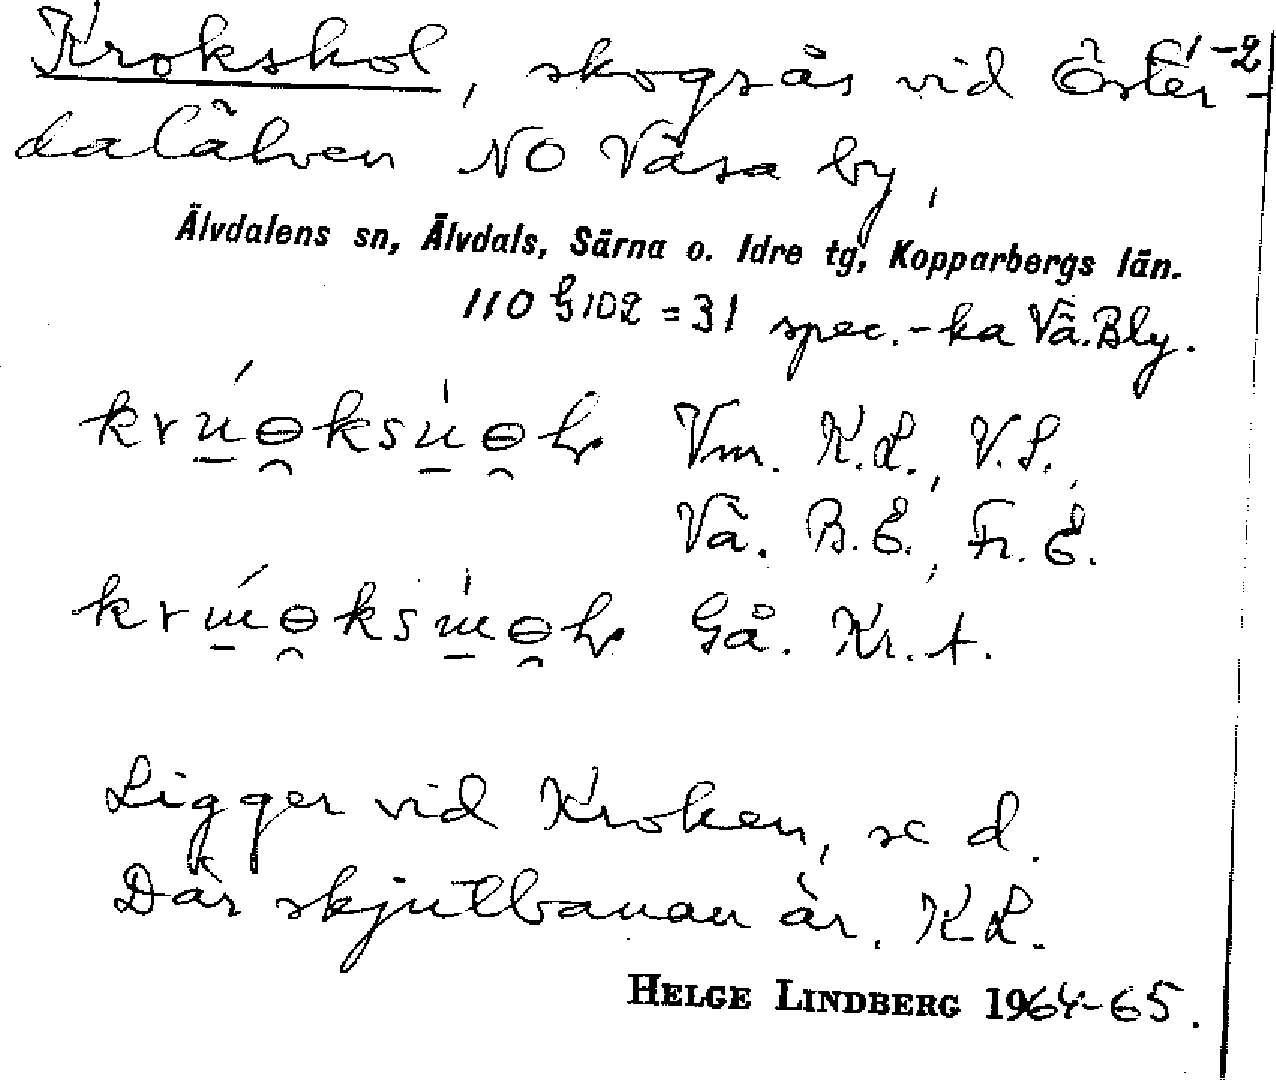 Krokskol, skogsås vid Öster-
1-2
dalälven NO Våsa by,
Älvdalens sn, Älvdals, Särna o. Idre tg, Kopparbergs län.
110 G102 = 31 spec.-ka Vå. Bly.
Vm. K.L., V.S.,
Vå. B.E., Fr. E.
Gå. Kr. A.
Ligger vid Kroken, se d.
Där skjutbanan är. K.L.
HELGE LINDBERG 1964-65.